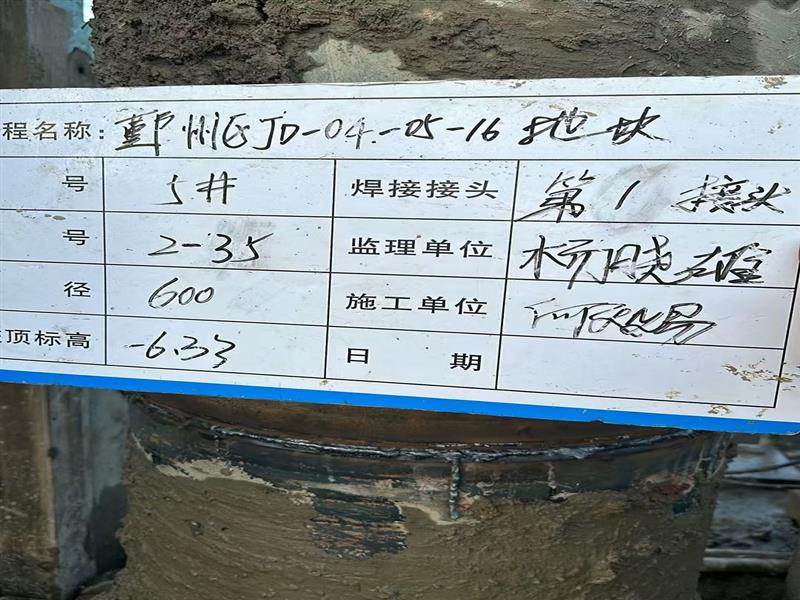 程名称: 鄞州区JD-04-05-16地块
号 5# 焊接接头 第1接头
号 2-35 监理单位 杨晓雄
径 600 施工单位
顶标高 -6.33 日 期